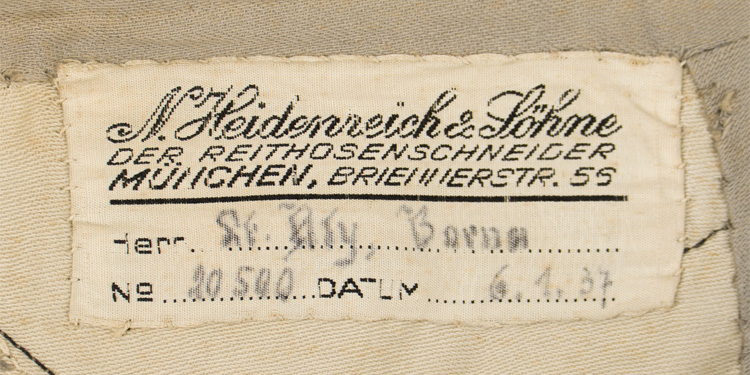 N. Heidenreich & Söhne
DER REITHOSENSCHNEIDER
MÜNCHEN, BRIENNERSTR. 55
Herr Borna
No 10500 DATUM 6.1.37